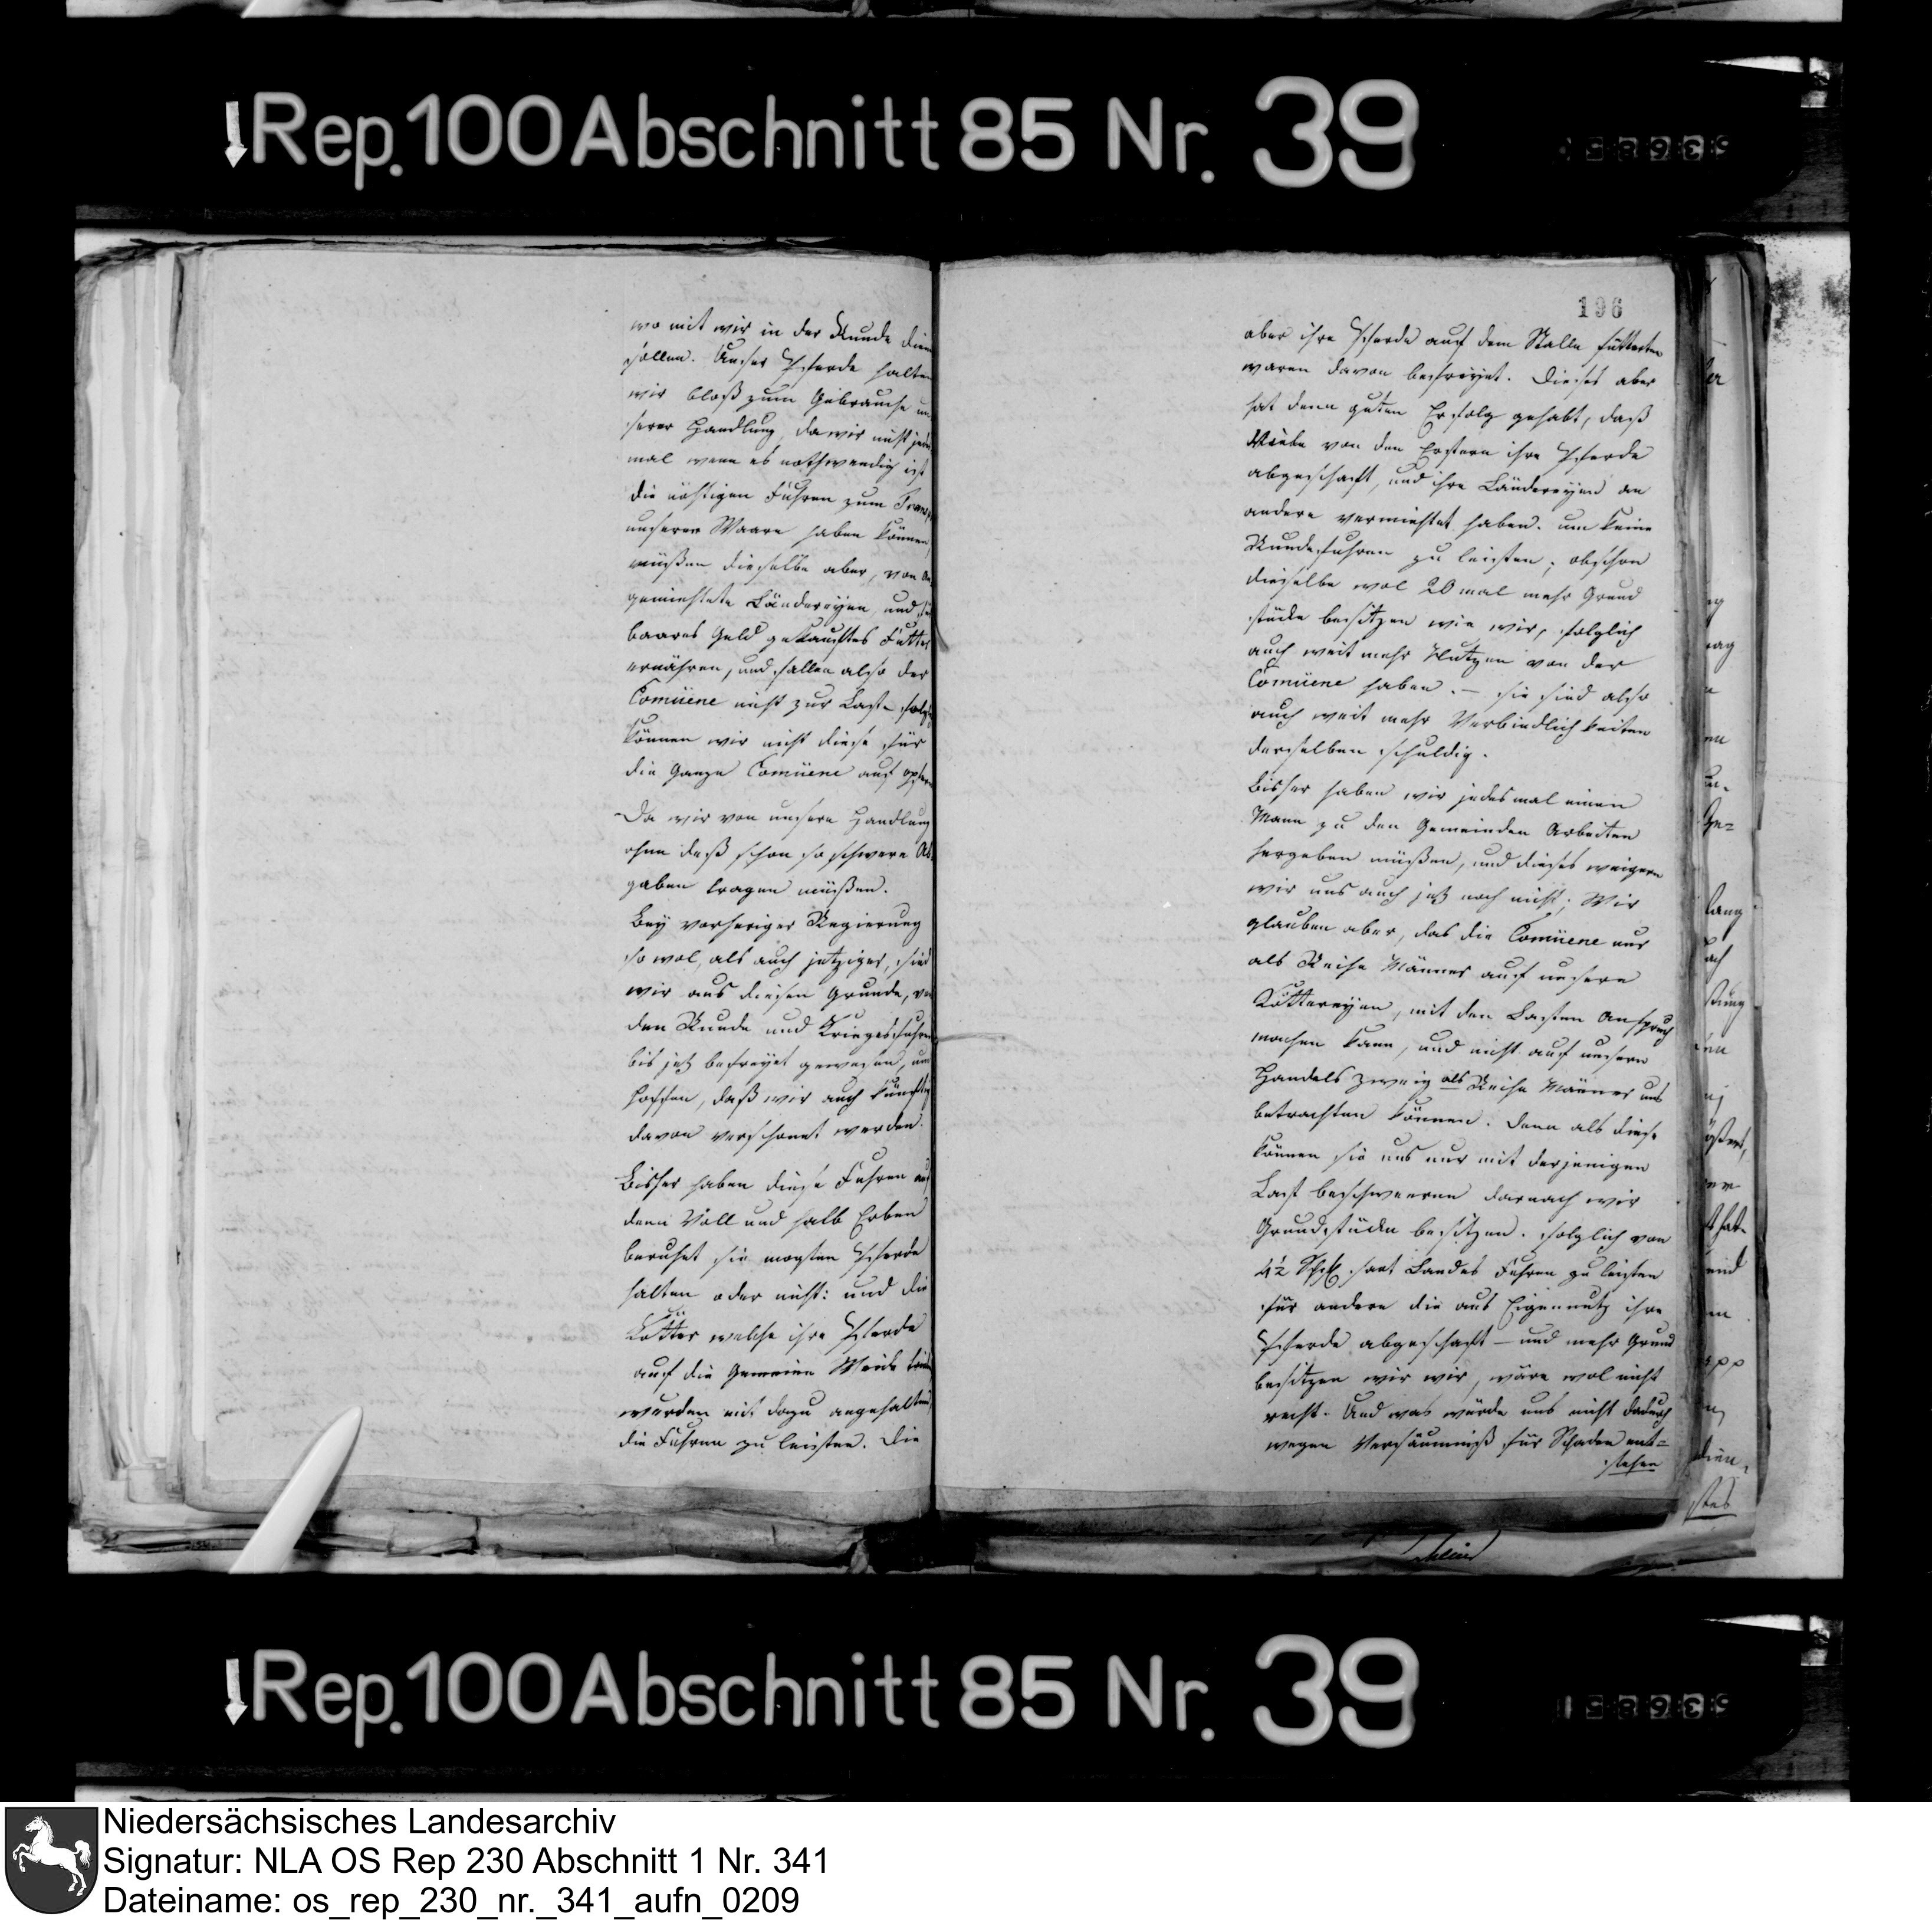 Rep. 100 Abschnitt 85 Nr. 39
wo mit wir in der Runde dienen
sollen. Unser Pferde halten
wir bloß zum Gebrauche un
serer Handlung, da wir nicht jedes
mal wenn es nothwendig ist
die nöthigen Fuhren zum Transp
unserer Waare haben können,
müßen dieselbe aber, von an
gemiethete Ländereyen, und für
baares Geld gekauftes Futter
ernähren, und fallen also der
Comüene nicht zur Last folgl
können wir nicht diese für
die Ganze Comüene auf opfern
Da wir von unsere Handlung
ohne deß schon so schwere Ab
gaben tragen müßen.
Bey vorheriger Regierung
so wol, als auch jetziger, sind
wir aus diesen Grunde, von
den Runde und Kriegesfuhren
bis jetz befreyet gewesen, und
hoffen, daß wir auch künftig
davon verschont werden.
Bisher haben diese Fuhren auf
denn Voll und halb Erben
beruhet sie mogten Pferde
halten oder nicht: und die
Kötter welche ihre Pferde
auf die Gemeine Weide
wurden mit dazu angehalten,
die Fuhren zu leisten. Die
196
aber ihre Pferde auf dem Stalle fütterten
waren davon befreyet. Dieses aber
hat denn guten Erfolg gehabt, daß
Viele von den Erstern ihre Pferde
abgeschaft, und ihre Länderyen an
andere vermiethet haben. um keine
Rundefuhren zu leisten; obschon
dieselbe wol 20 mal mehr Grund
stücke besitzen wie wir, folglich
auch weit mehr Nutzen von der
Comüene haben. – sie sind also
auch weit mehr Verbindlichkeiten
derselben schuldig.
Bisher haben wir jedes mal einen
Mann zu den Gemeinden Arbeiten
hergeben müßen, und dieses weigern
wir uns auch jetz noch nicht; Wir
glauben aber, das die Comüene nur
als Reihe Männer auf unsere
Köttereyen, mit den Lasten Anspruch
machen kann, und nicht auf unsern
Handels Zweig als Reihe Männer uns
betrachten können. Denn als diese
können sie uns nur mit derjenigen
Last beschweren darnach wir
Grundstücke besitzen. folglich von
saat Landes Fuhren zu leisten
für andere die aus Eigennutz ihre
Pferde abgeschaft – und mehr Grund
besitzen wie wir, wäre wol nicht
recht. Und was würde uns nicht dadurch
wegen Versäumniß für Schaden ent=
stehen
Rep. 100 Abschnitt 85 Nr. 39
Niedersächsisches Landesarchiv
Signatur: NLA OS Rep 230 Abschnitt 1 Nr. 341
Dateiname: os_rep_230_nr._341_aufn_0209